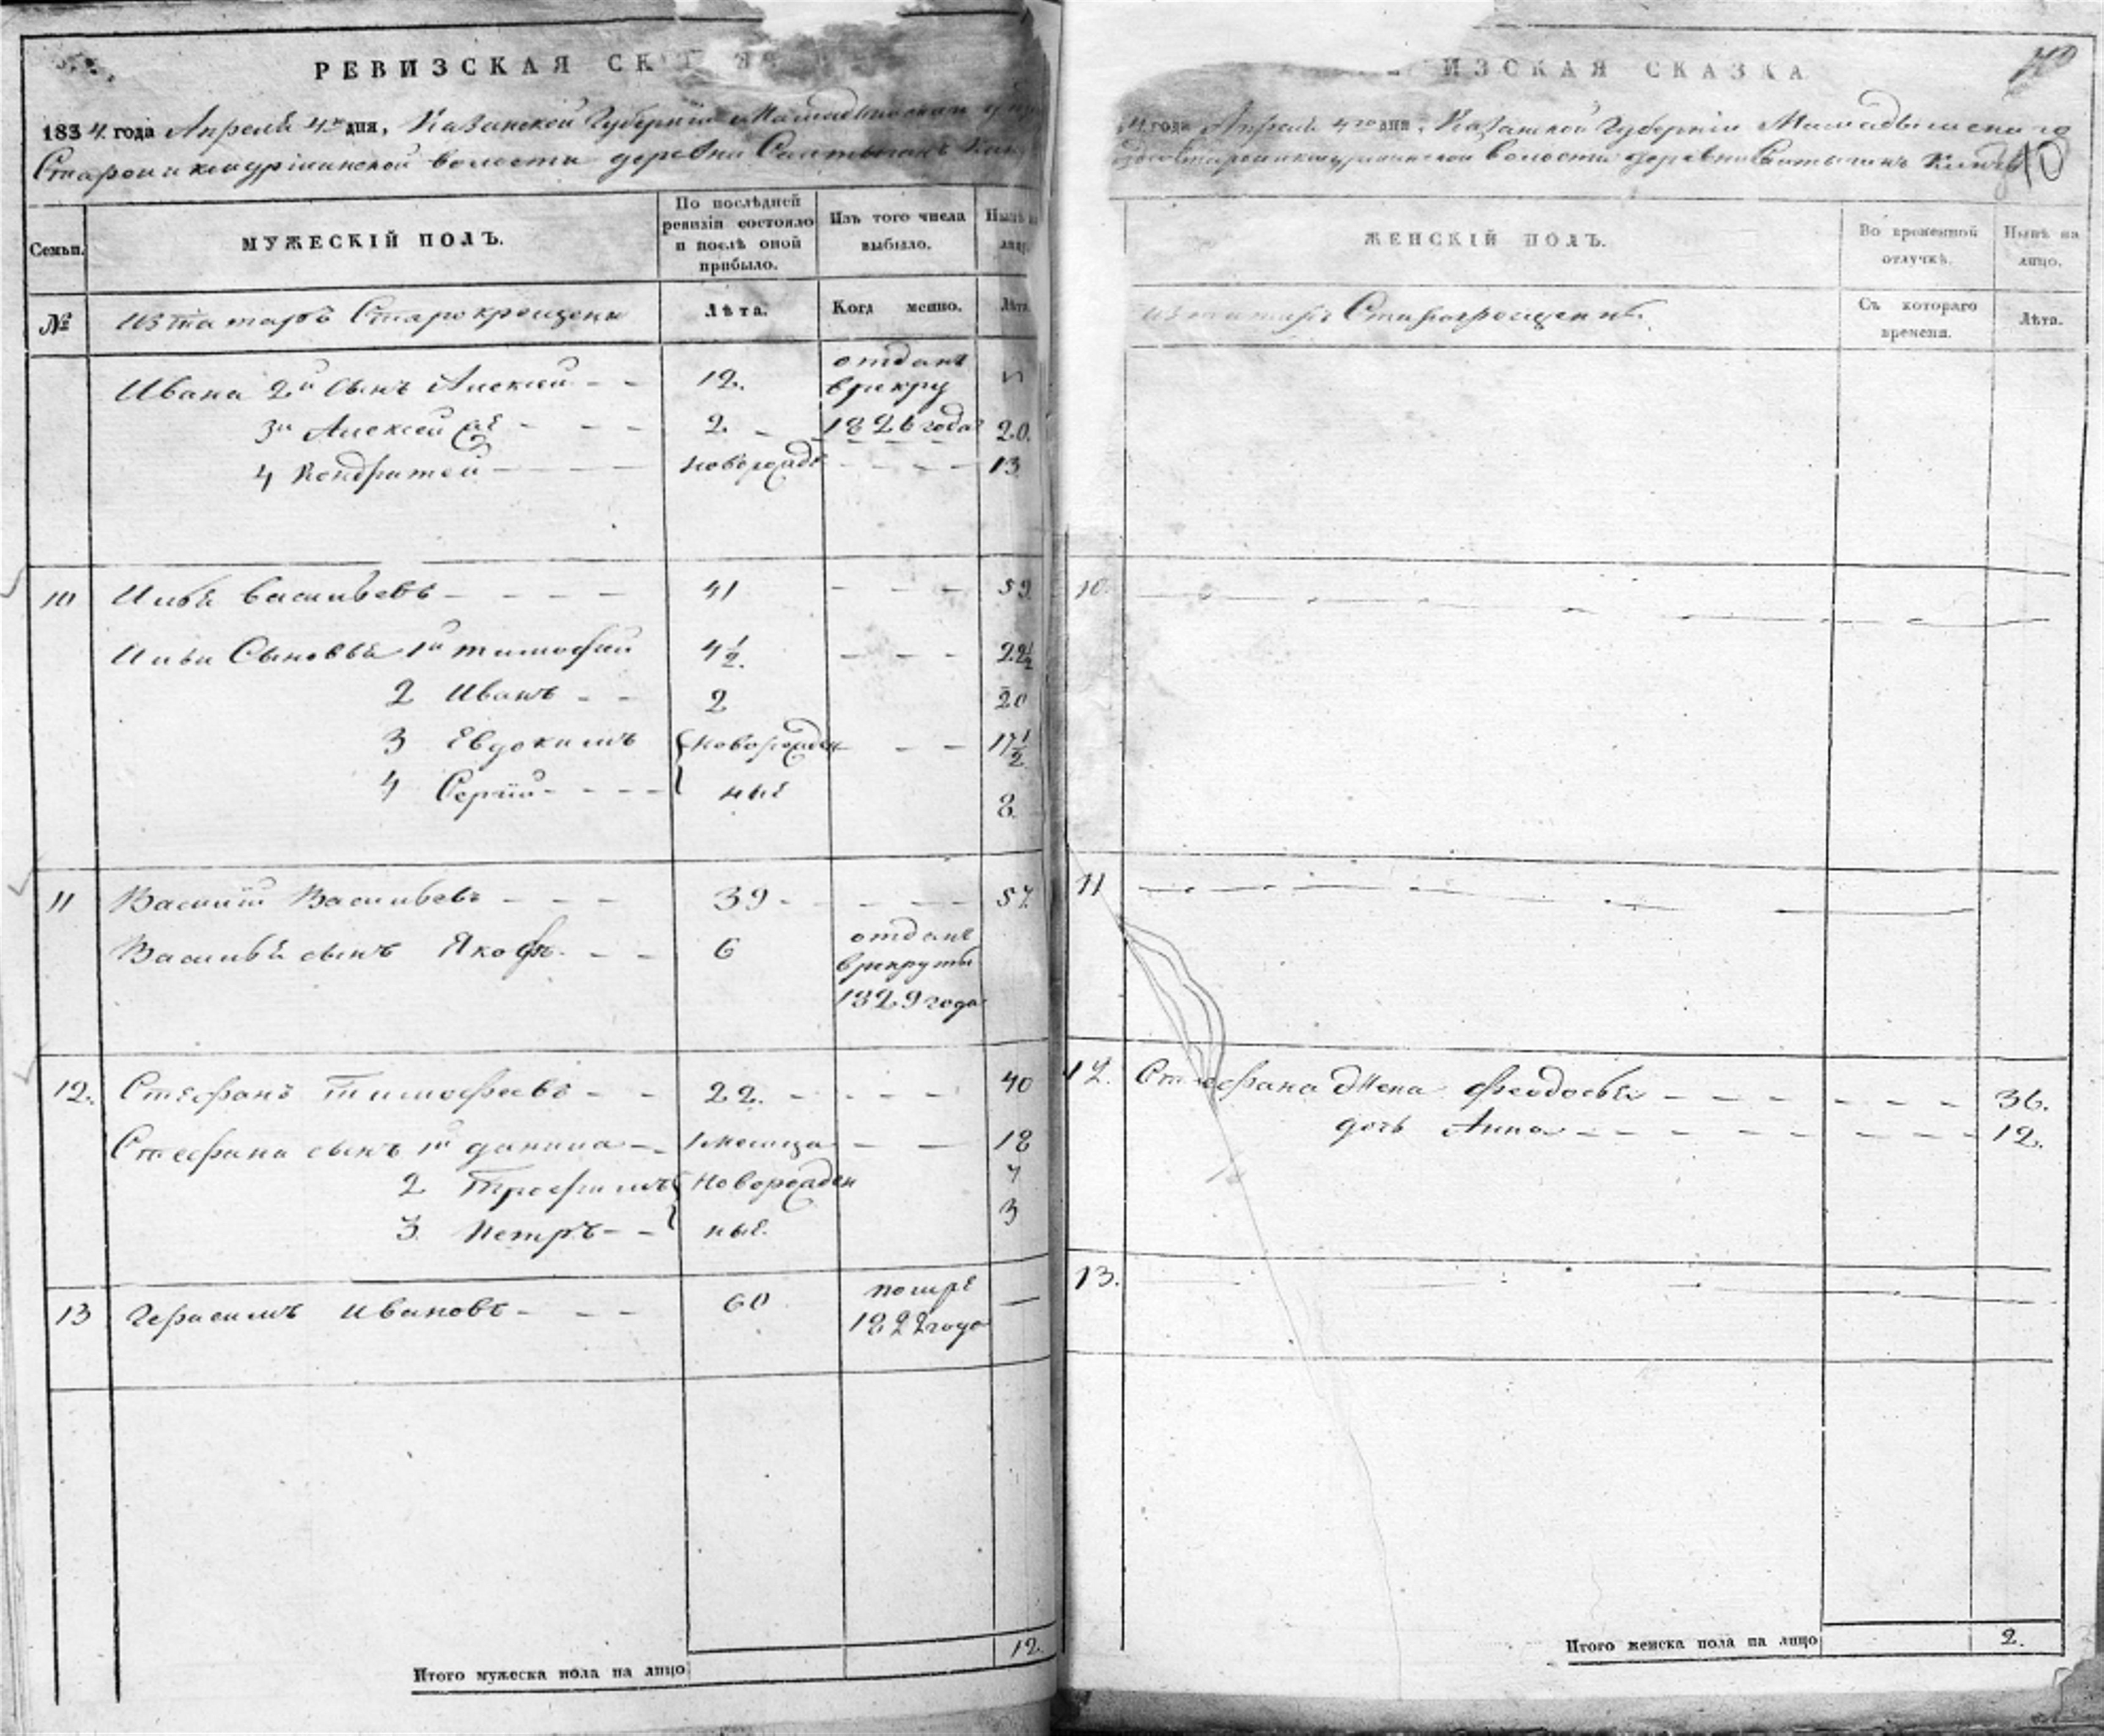 РЕВИЗСКАЯ СК
1834. года Апреля 4го дня, Казанской Губернiи Мамадышскаго
волости деревни
Семьи.
МУЖЕСКIЙ ПОЛЪ.
По послѣдней ревизiи состояло и послѣ оной прибыло.
Изъ того числа выбыло.
Нынѣ на лицо.
№
Изъ татаръ Старокрещены
Лѣта.
Когда именно.
Лѣта.
Ивана 2й сынъ Алексей
12.
отданъ
в рекру
1826 года
3й Алексей же
2.
20.
4 Кондратей
новорожде
13
10 Илья Васильевъ
41
59.
Ильи Сыновья 1й тимофей
4 1/2.
22 1/2
2 Иванъ
2
20
3 Евдокимъ
новорожден
17 1/2
4 Сергiй
ные
8.
11 Василiй Васильевъ
39
57.
Василья сынъ Яковъ.
6
отданъ
в рекруты
1829 года
12. Стефанъ Тимофеевъ
22.
40
Стефана сынъ 1й данила
1 месяца
18
2 Трофимъ
новорожден
7
3 Петръ
ные.
3
13 Герасимъ Ивановъ
60
помре
1822 года
Итого мужеска пола на лицо
12.
ИЗСКАЯ СКАЗКА
4. года Апреля 4го дня, Казанской Губернiи Мамадышскаго
волости деревни
10
ЖЕНСКIЙ ПОЛЪ.
Во временной отлучкѣ.
Нынѣ на лицо.
Изъ татаръ Старокрещены
Съ котораго времени.
Лѣта.
10.
11
12. Стефана жена Феодосья
36.
дочь Анна
12.
13.
Итого женска пола на лицо
2.